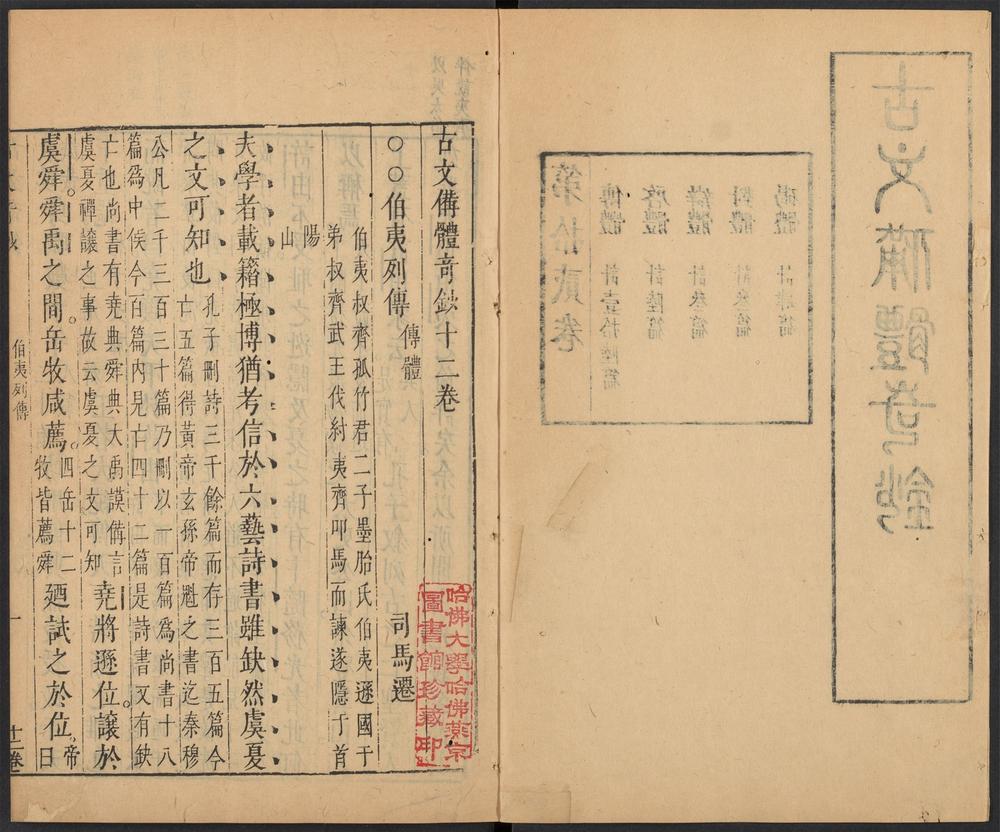 古文備體奇鈔
第拾貳卷
傳體 計壹拾陸篇
啓體 計陸篇
計叁篇
對體 計叁篇
碣體 計肆篇
古文備體奇鈔十二卷
○○伯夷列傳 傳體 司馬遷
伯夷叔齊孤竹君二子墨胎氏伯夷遜國于
弟叔齊武王伐紂夷齊叩馬而諫遂隱于首
陽
山
夫學者載籍極博猶考信於六藝詩書雖缺然虞夏
之文可知也
孔子刪詩三千餘篇而存三百五篇今
亡五篇得黃帝玄孫帝魁之書迄秦穆
公凡二千三百三十篇乃刪以一百篇爲尚書十八
篇爲中候今百篇內見亡四十二篇是詩書又有缺
亡也尚書有堯典舜典大禹謨備言
虞夏禪讓之事故云虞夏之文可知
堯將遜位讓於
虞舜。舜禹之間岳牧咸薦。
四岳十二
牧皆薦舜
廼試之於位。
帝
曰
伯夷列傳 一 十二卷
哈佛大學哈佛燕京
圖書館珍藏印